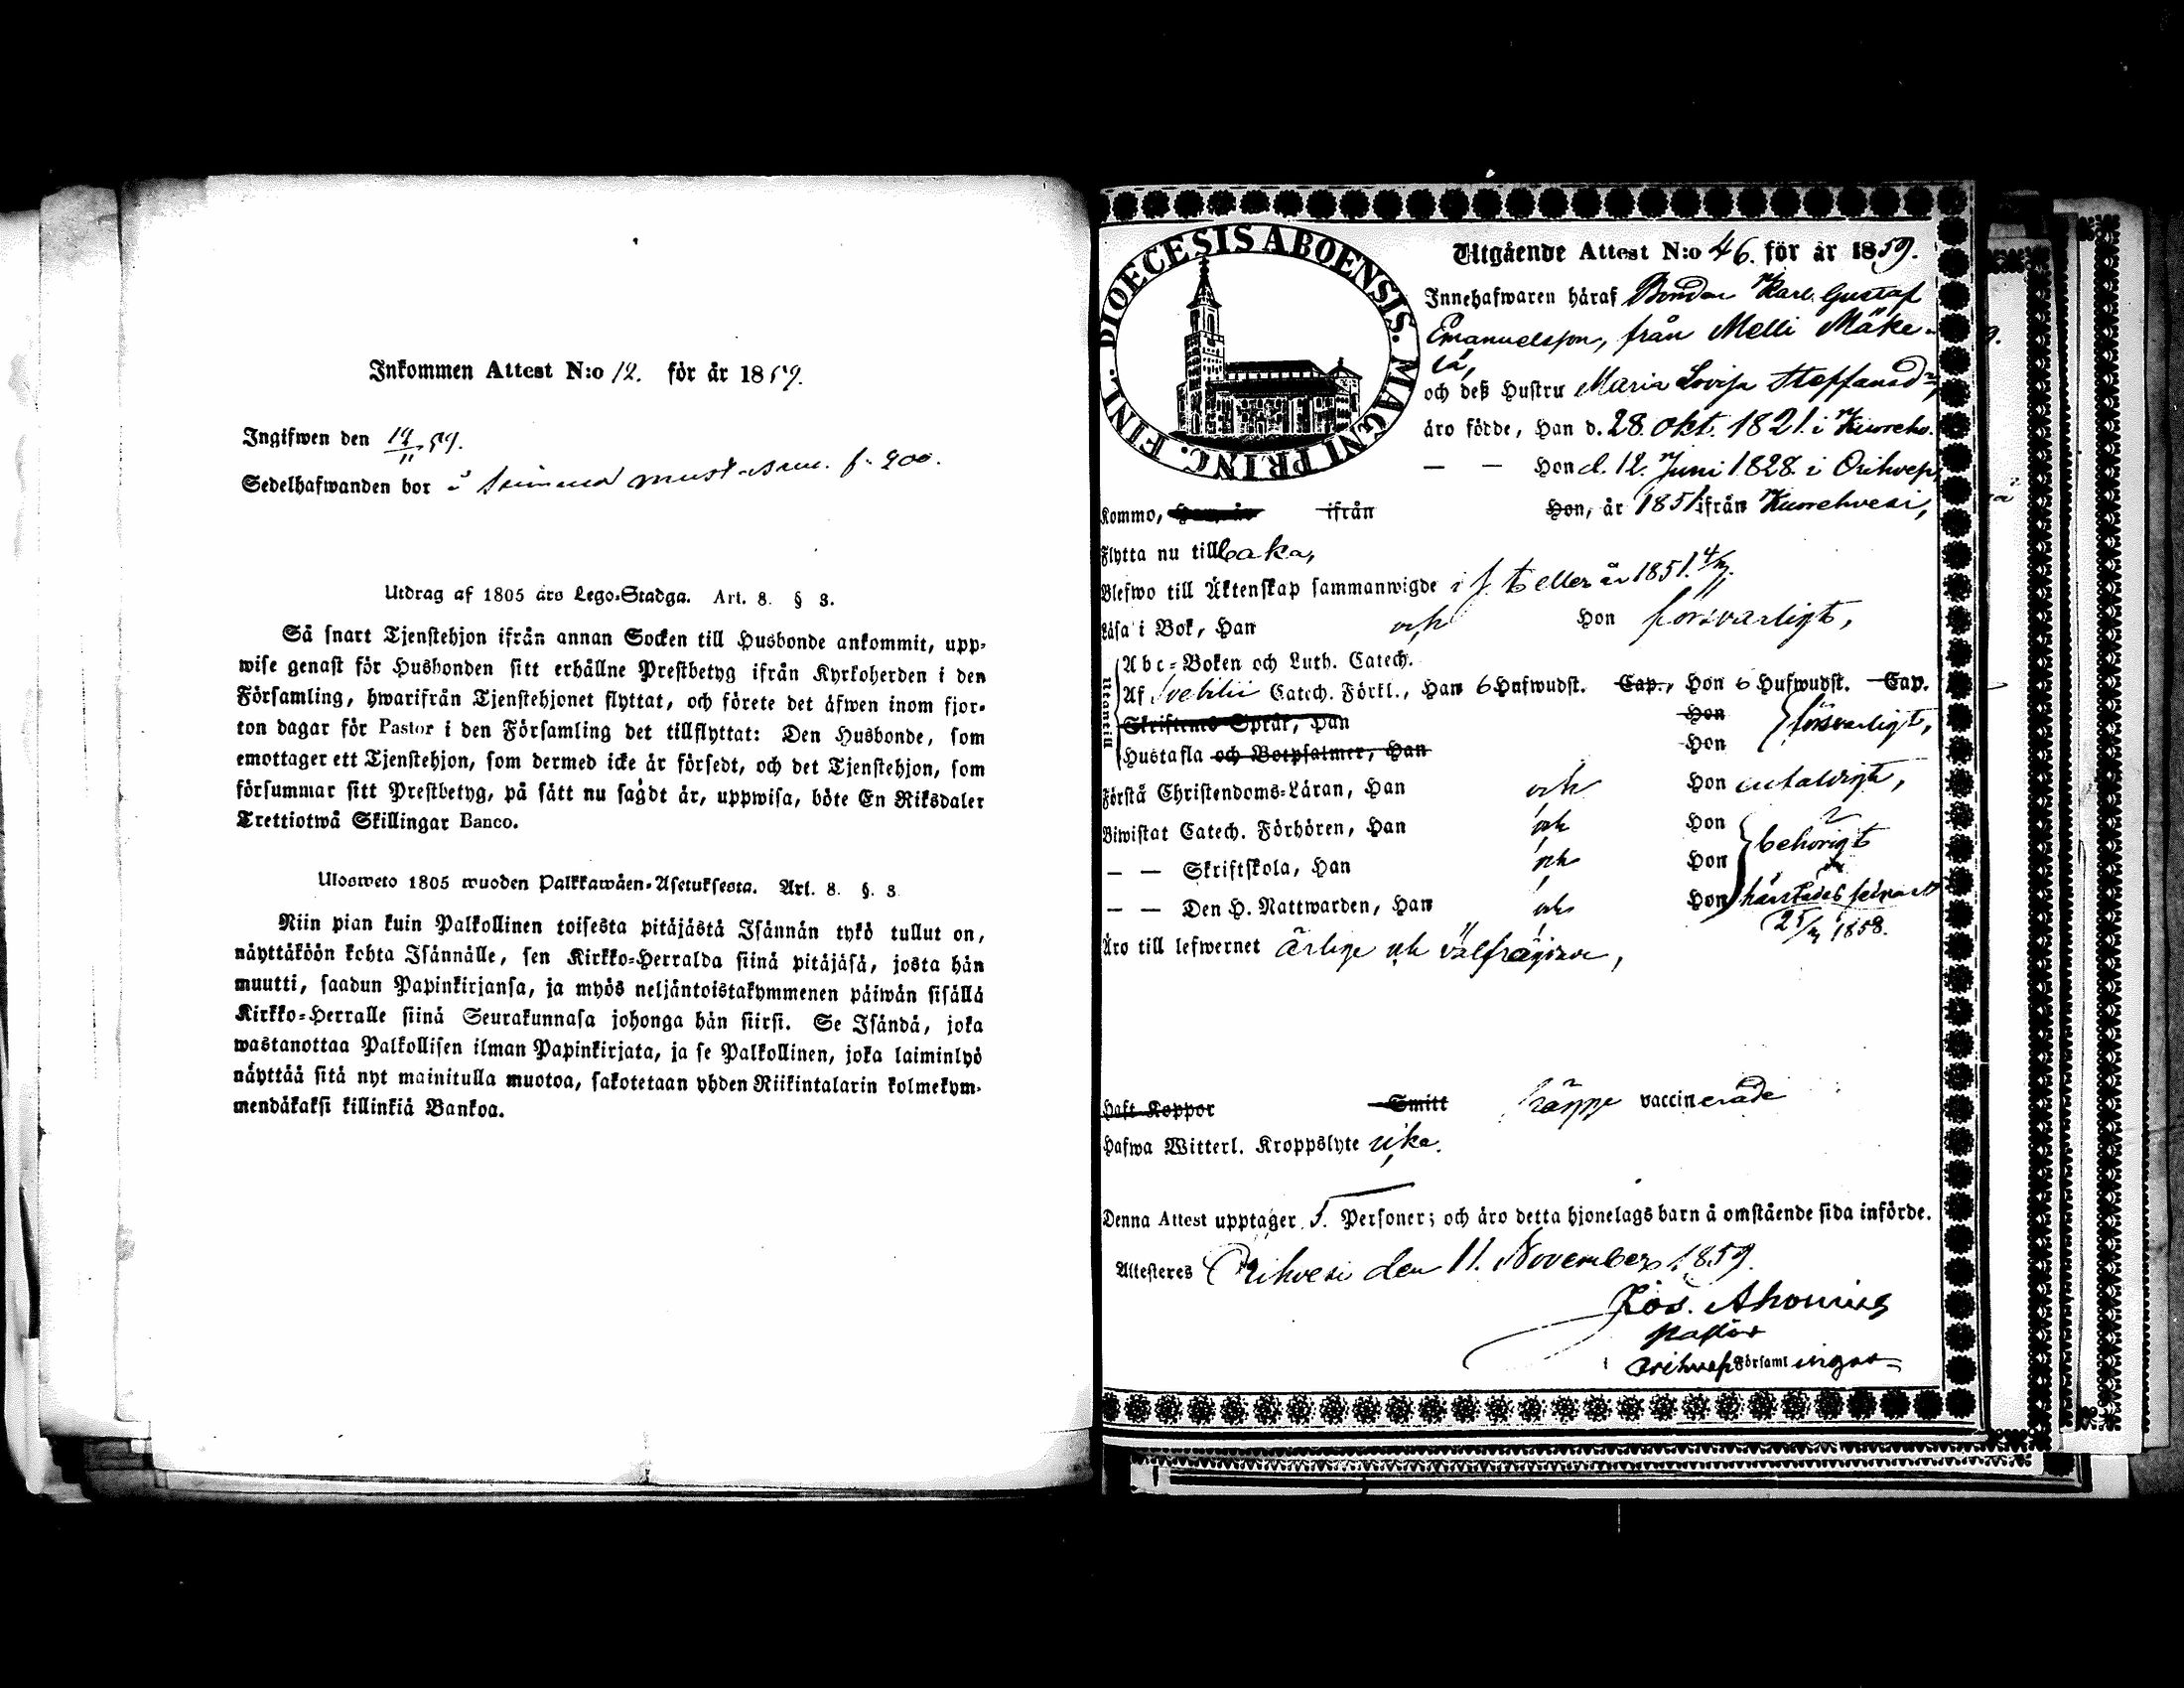 Inkommen Attest N:o 12. för år 1859.
Ingifwen den 19/11 59.
Sedelhafwanden bor i f. 200.
Utdrag af 1805 års Lego-Stadga. Art. 8. § 3.
Så snart Tjenstehjon ifrån annan Socken till Husbonde ankommit, upp-
wise genast för Husbonden sitt erhållne Prestbetyg ifrån Kyrkoherden i den
Församling, hwarifrån Tjenstehjonet flyttat, och förete det äfwen inom fjor-
ton dagar för Pastor i den Församling det tillflyttat: Den Husbonde, som
emottager ett Tjenstehjon, som dermed icke är försedt, och det Tjenstehjon, som
försummar sitt Prestbetyg, på sätt nu sagdt är, uppwisa, böte En Riksdaler
Trettiotwå Skillingar Banco.
Ulosweto 1805 wuoden Palkkawäen-Asetuksesta. Art. 8. §. 3
Niin pian kuin Palkollinen toisesta pitäjästä Isännän tykö tullut on,
näyttäköön kohta Isännälle, sen Kirkko-Herralda siinä pitäjäsä, josta hän
muutti, saadun Papinkirjansa, ja myös neljäntoistakymmenen päiwän sisällä
Kirkko-Herralle siinä Seurakunnasa johonga hän siirsi. Se Isändä, joka
wastanottaa Palkollisen ilman Papinkirjata, ja se Palkollinen, joka laiminlyö
näyttää sitä nyt mainitulla muotoa, sakotetaan yhden Riikintalarin kolmekym-
mendäkaksi killinkiä Bankoa.
DIOECESIS ABOENSIS. MAGNI PRINC. FINL.
Utgående Attest N:o 46. för år 1859.
Innehafwaren häraf Bonden Karl Gustaf
Emanuelsson, från Melli Mäke-
lä,
och deß Hustru Maria Lovisa Staffansdr,
äro födde, Han d. 28. Okt. 1821. i Kuoreho.
— — Hon d. 12. Juni 1828. i Orihvesi,
Kommo, Han, år ifrån Hon, år 1851 ifrån Kuorehvesi,
Flytta nu tillbaka,
Blefwo till Äktenskap sammanwigde i år 1851. 4/11.
Läsa i Bok, Han och Hon försvarligt,
Utantill
Abc-Boken och Luth. Catech.
Af Svebilii Catech. Förkl., Han 6 Hufwudst. Cap., Hon 6 Hufwudst. Cap.
Skriftenes Språk, Han Hon försvarligt,
Hustafla och Botpsalmer, Han Hon
Förstå Christendoms-Läran, Han och Hon
Biwistat Catech. Förhören, Han och Hon behörigt
— — Skriftskola, Han och Hon
— — Den H. Nattwarden, Han och Hon härstädes senast
25/ 1858.
Äro till lefwernet ärlige och välfrägdade,
Haft Koppor Smitt vaccinerade
Hafwa Witterl. Kroppslyte icke.
Denna Attest upptager 5. Personer; och äro detta hjonelags barn å omstående sida införde.
Attesteres Orihvesi den 11. November 1859.
Jos. Ahonius
Pastor
Orihvesi Församlingar